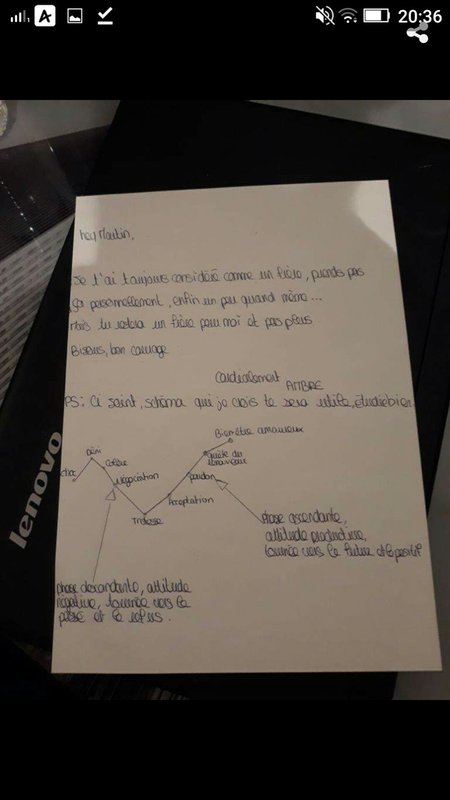 20:36
Hey Martin,
Je t'ai toujours considéré comme un frère, prends pas
ça personnellement, enfin un peu quand même...
Mais tu restera un frère pour moi et pas plus.
Bisous, bon courage
Cordialement AMBRE
PS: Ci saint, schéma qui je crois te sera utile, étudie bien.
Bien être amoureux
Déni
quête du renouveau
choc
Colère
Négociation
pardon
Acceptation
Tristesse
phase ascendante,
attitude productive,
tournée vers le future et le positif
phase descandante, attitude
négative, tournée vers le
passé et le refus.
lenovo